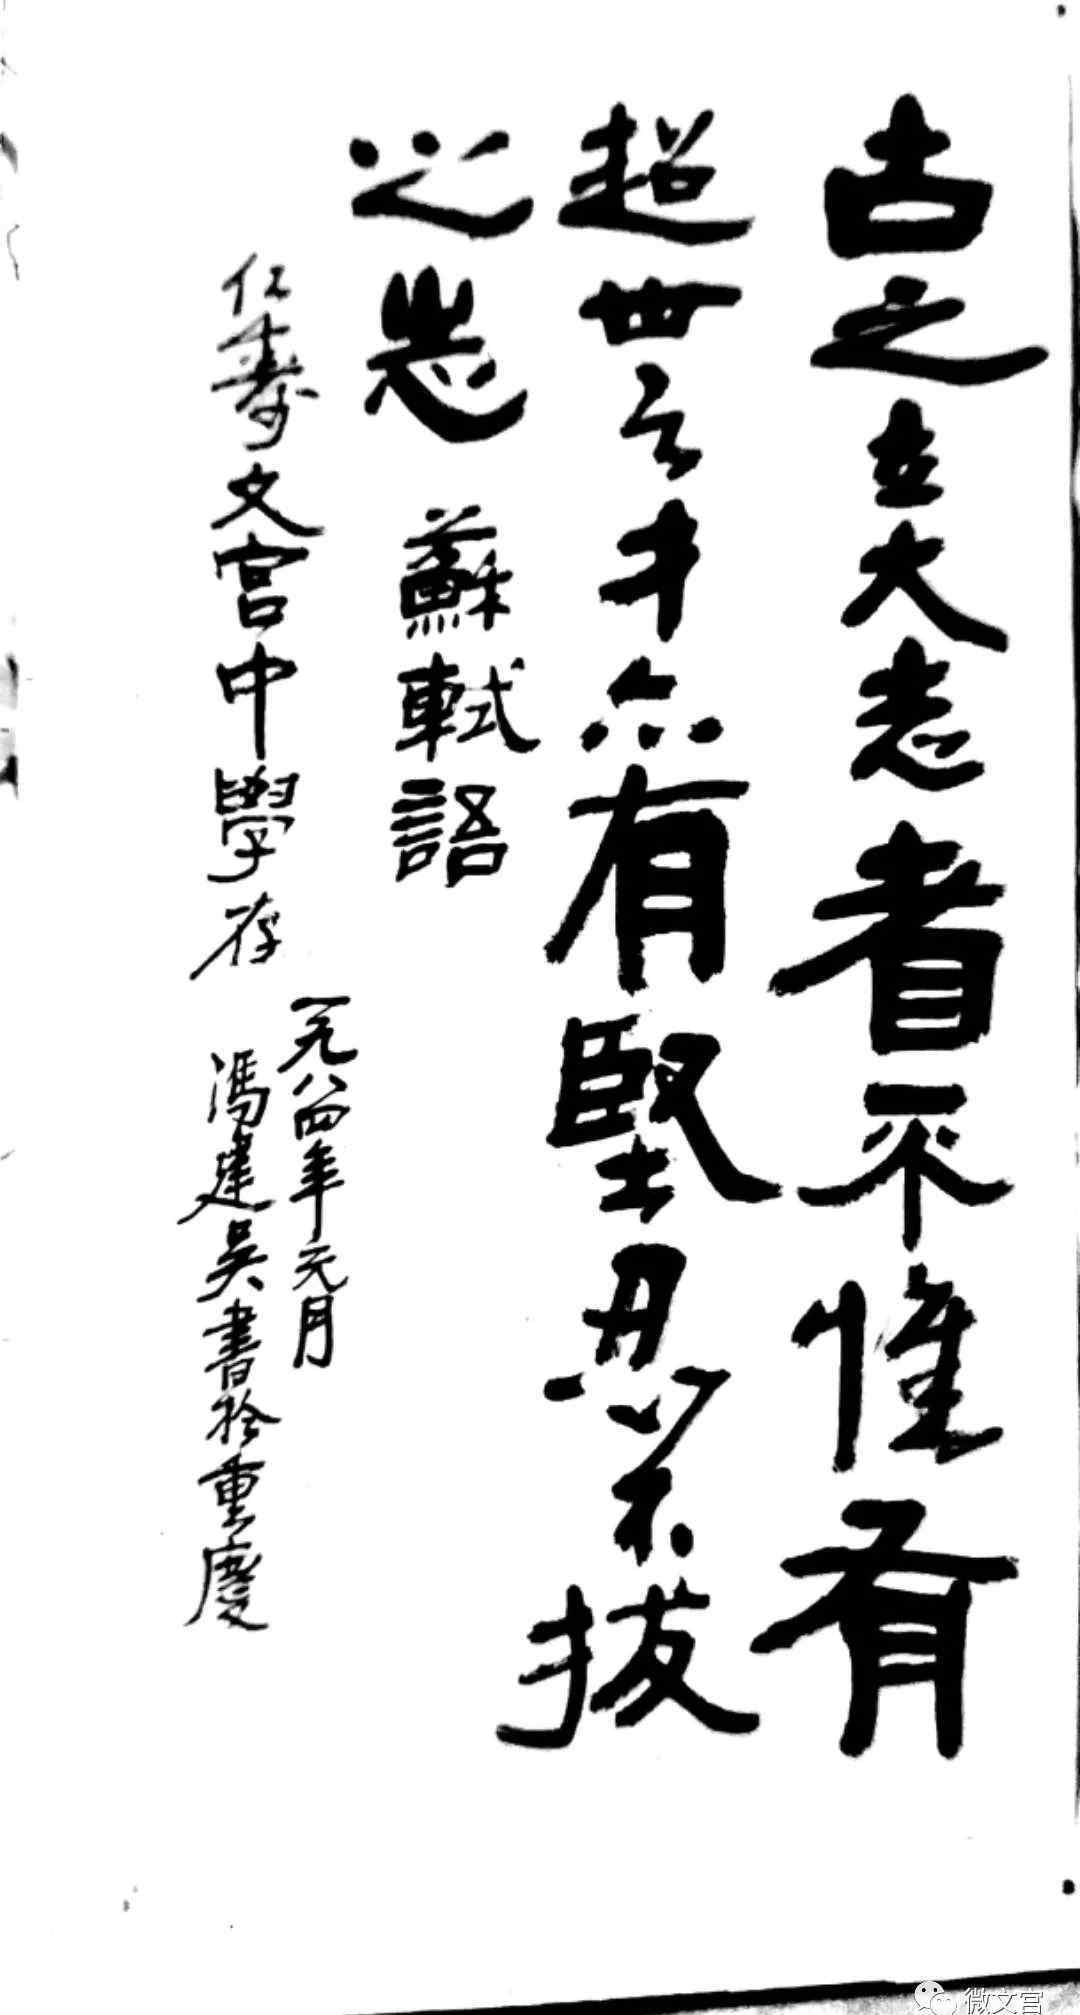 古之立大志者不惟有
超世之才亦有堅忍不拔
之志 蘇軾語
仁壽文宫中學存
一九八四年元月
馮建吴書於重慶
微文宫